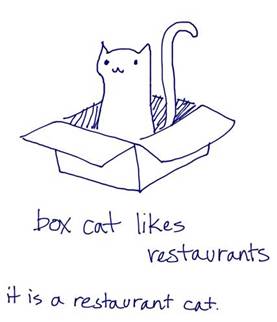 box cat likes
restaurants
it is a restaurant cat.